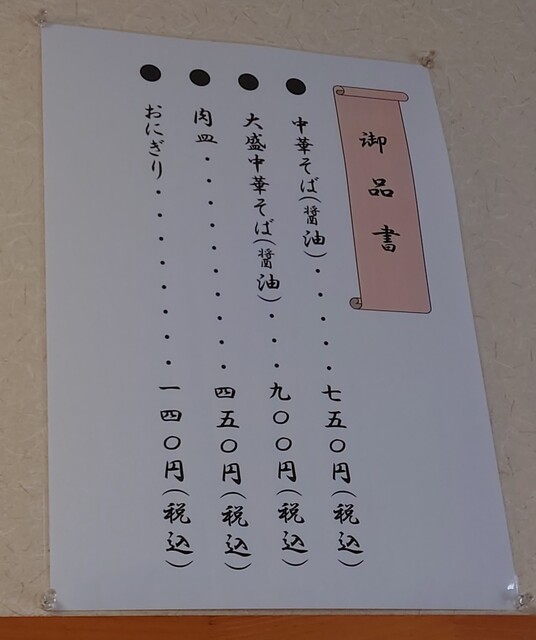 御品書
●中華そば(醤油)・・・・・七五〇円(税込)
●大盛中華そば(醤油)・・・九〇〇円(税込)
●肉皿・・・・・・・・・・四五〇円(税込)
●おにぎり・・・・・・・・・一四〇円(税込)